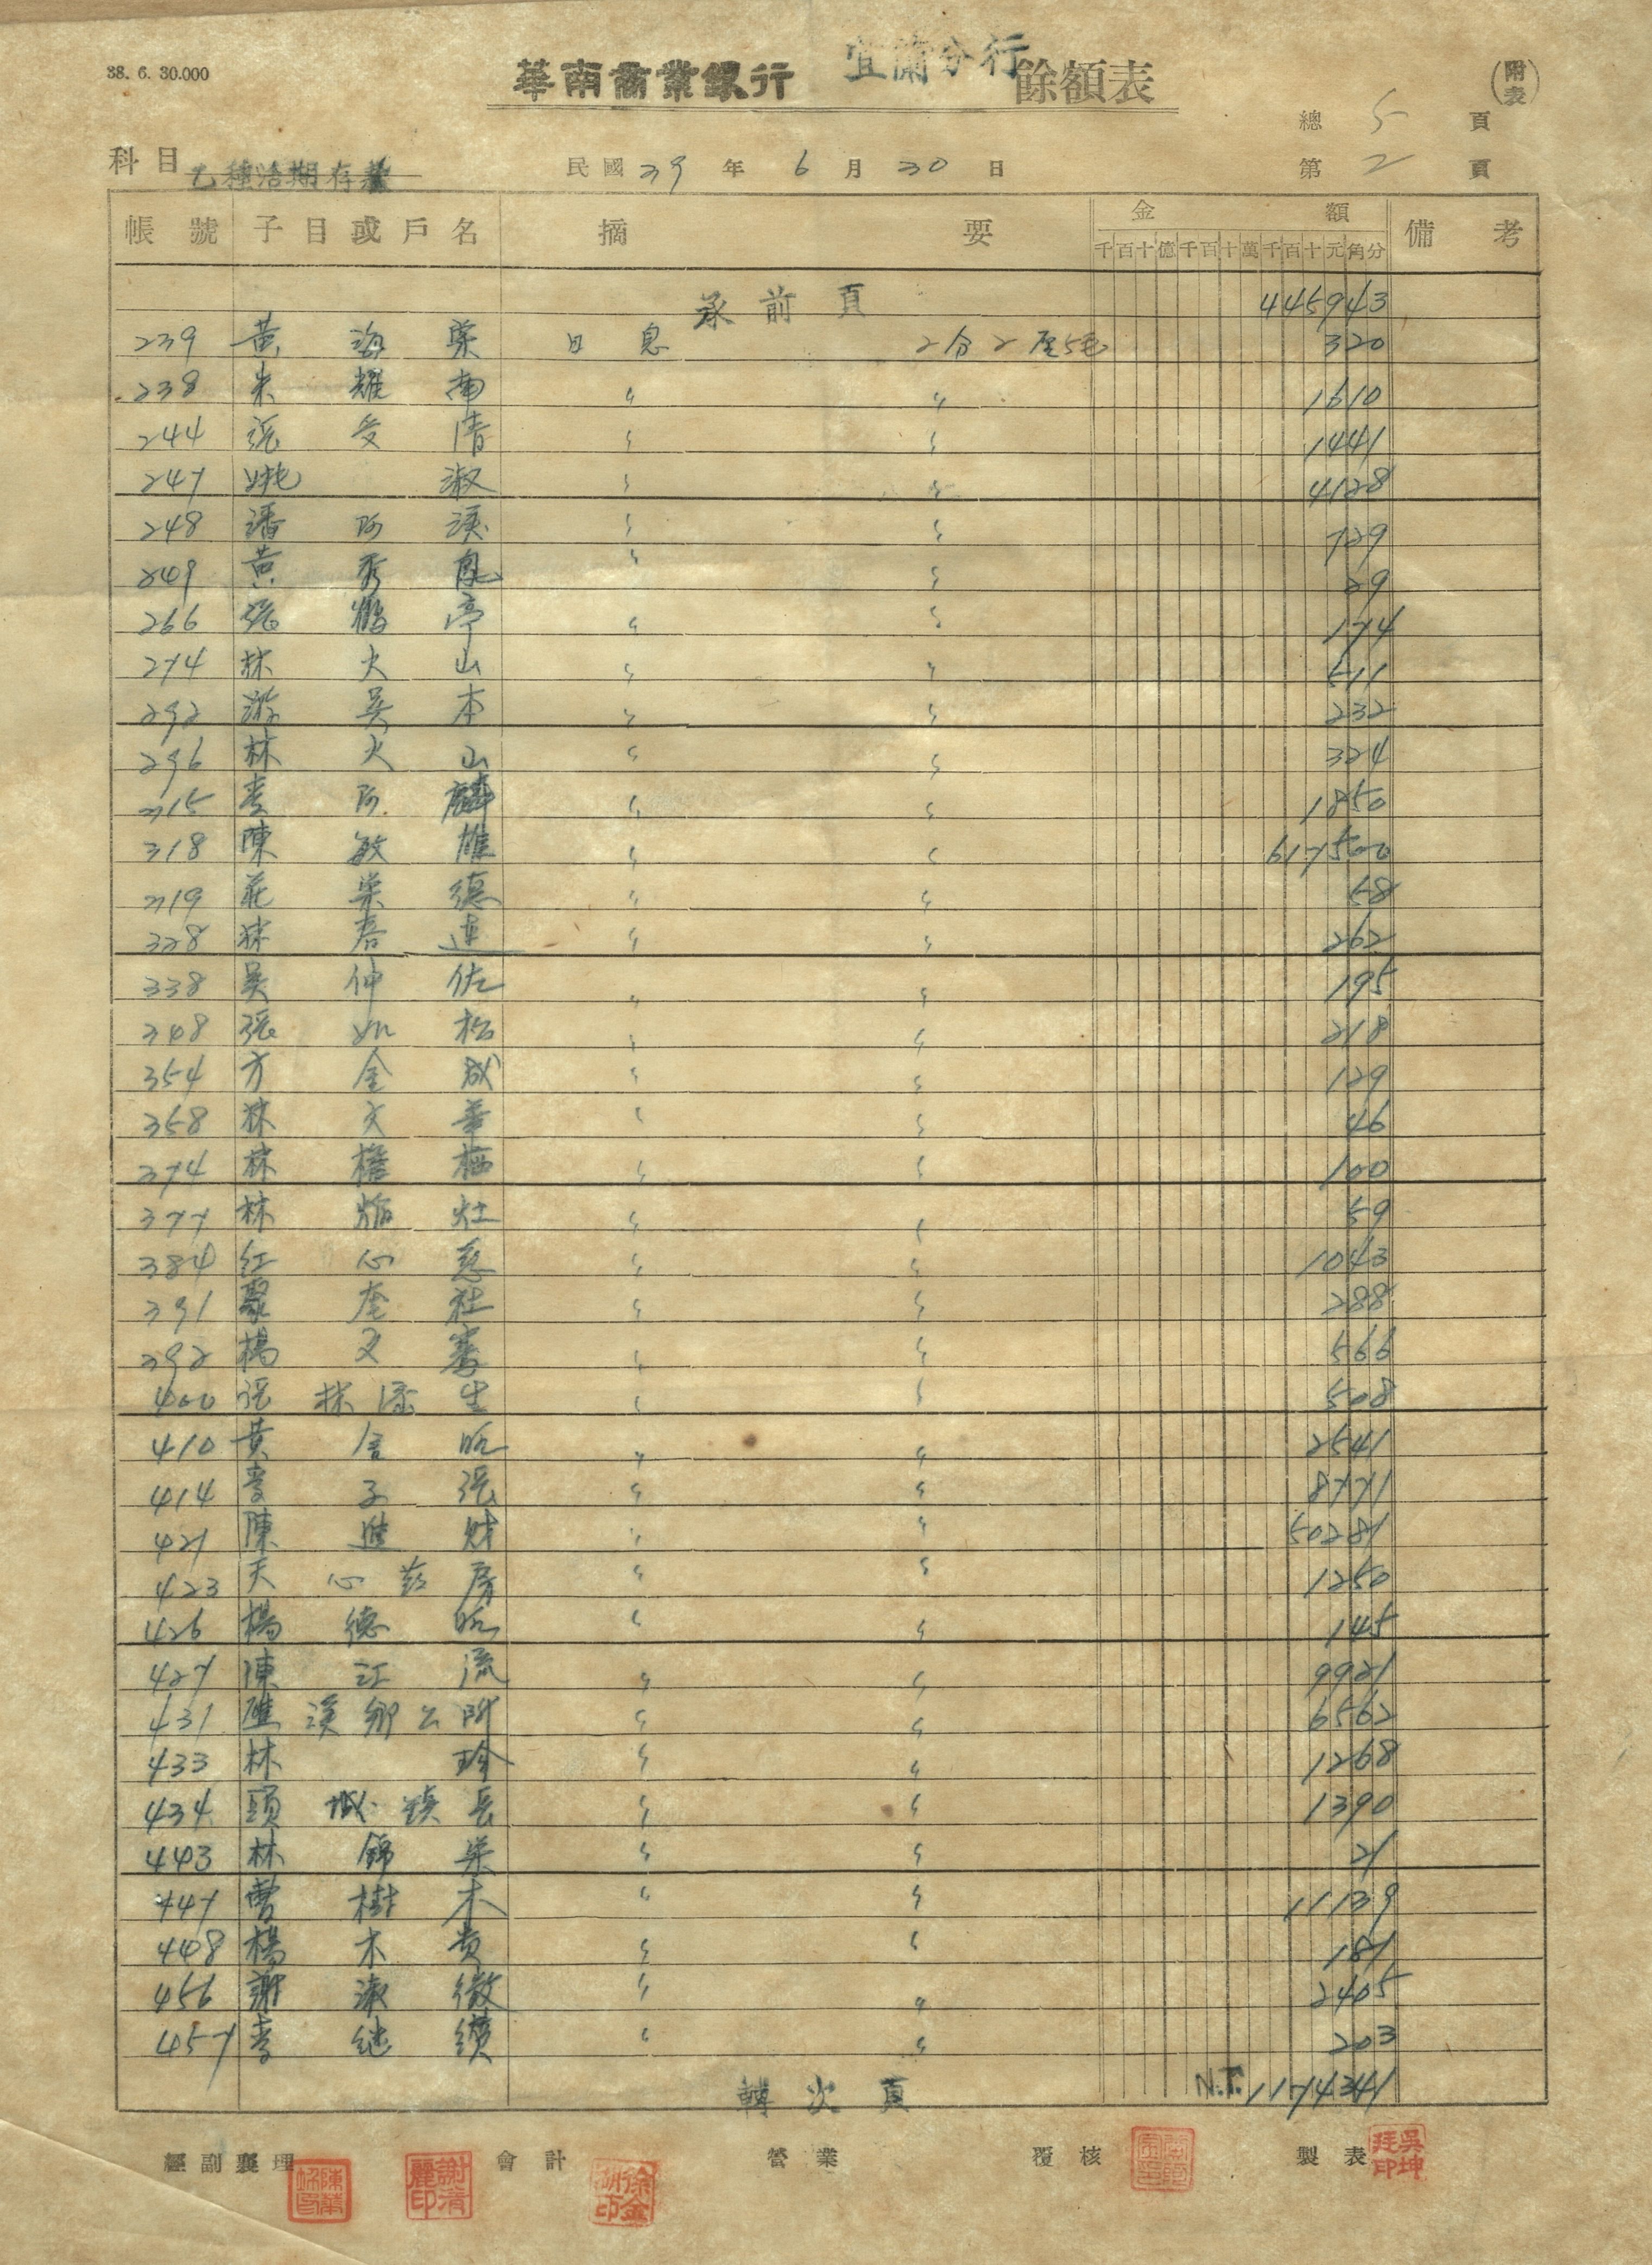 38. 6. 30.000
華南商業銀行 宜蘭分行 餘額表 (附表)
總 5 頁
科目 乙種活期存款 民國 39 年 6 月 30 日 第 2 頁
帳號 子目或戶名 摘要 金額 備考
千百十億千百十萬千百十元角分
承前頁 445943
239 黃海 日息 2分2厘5毛 320
238 朱耀南 〃 〃 1610
244 張受清 〃 〃 1441
247 姚淑 〃 〃 4128
248 潘阿 〃 〃 729
249 黃秀鳳 〃 〃 29
266 張鶴亭 〃 〃 174
274 林火山 〃 〃 511
292 游吳本 〃 〃 232
296 林火山 〃 〃 324
315 李阿麟 〃 〃 1850
318 陳敏雄 〃 〃 617500
319 莊榮德 〃 〃 58
328 林春連 〃 〃 262
338 吳仲佐 〃 〃 195
348 張如松 〃 〃 218
354 方金成 〃 〃 129
358 林文華 〃 〃 46
374 林 〃 〃 100
377 林灶 〃 〃 59
384 紅心慈 〃 〃 1043
391 聚奎社 〃 〃 288
392 楊文 〃 〃 566
400 張林添生 〃 〃 508
410 黃 〃 〃 2541
414 李子張 〃 〃 8771
421 陳進財 〃 〃 50281
423 天心房 〃 〃 1250
426 楊德 〃 〃 145
427 陳江流 〃 〃 9921
431 礁溪鄉公所 〃 〃 6562
433 林珍 〃 〃 1268
434 頭城鎮長 〃 〃 1390
443 林錦榮 〃 〃 21
447 曹樹木 〃 〃 11139
448 楊木貴 〃 〃 181
456 謝淑徵 〃 〃 2405
457 李繼纘 〃 〃 203
轉次頁 N.T. 1174341
經副襄理 會計 營業 覆核 製表